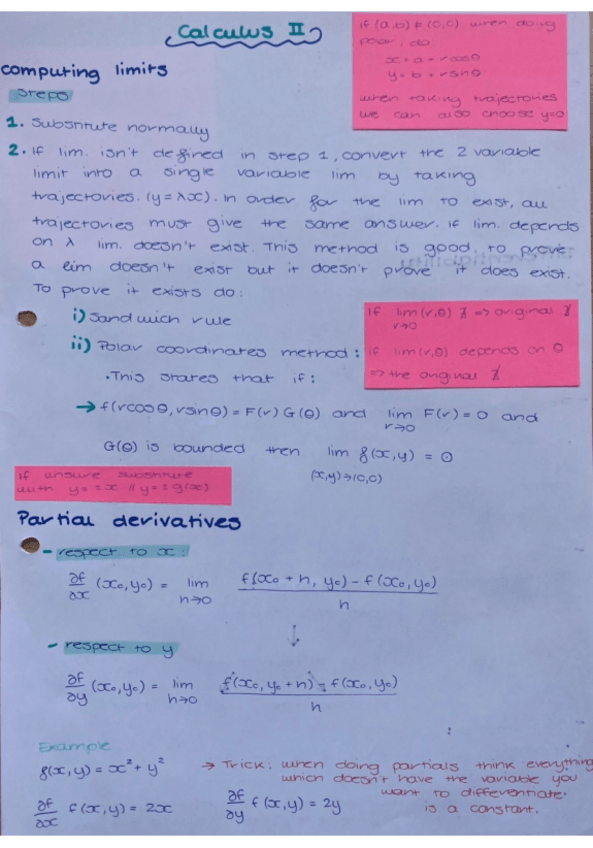 Calculus II
if (a,b) ≠ (0,0) when doing
polar, do:
x = a + rcosθ
y = b + rsinθ
when taking trajectories
we can also choose y=0
computing limits
Steps
1. Substitute normally
2. If lim. isn't defined in step 1, convert the 2 variable
limit into a single variable lim by taking
trajectories. (y = λx). In order for the lim to exist, all
trajectories must give the same answer. if lim. depends
on λ lim. doesn't exist. This method is good to prove
a lim doesn't exist but it doesn't prove it does exist.
To prove it exists do:
i) Sandwich rule
ii) Polar coordinates method:
If lim (r,θ) ∄ => original ∄
r→0
if lim(r,θ) depends on θ
=> the original ∄
• This states that if:
→ f(rcosθ, rsinθ) = F(r) G(θ) and lim F(r) = 0 and
r→0
G(θ) is bounded then lim f(x,y) = 0
(x,y)→(0,0)
if unsure substitute
with y = ±x // y = ± g(x)
Partial derivatives
- respect to x:
∂f/∂x (x₀,y₀) = lim h→0 f(x₀ + h, y₀) - f(x₀,y₀) / h
↓
- respect to y
∂f/∂y (x₀,y₀) = lim h→0 f(x₀, y₀ + h) - f(x₀,y₀) / h
Example
f(x,y) = x² + y²
→ Trick: when doing partials think everything
which doesn't have the variable you
want to differentiate.
is a constant.
∂f/∂x f(x,y) = 2x
∂f/∂y f(x,y) = 2y